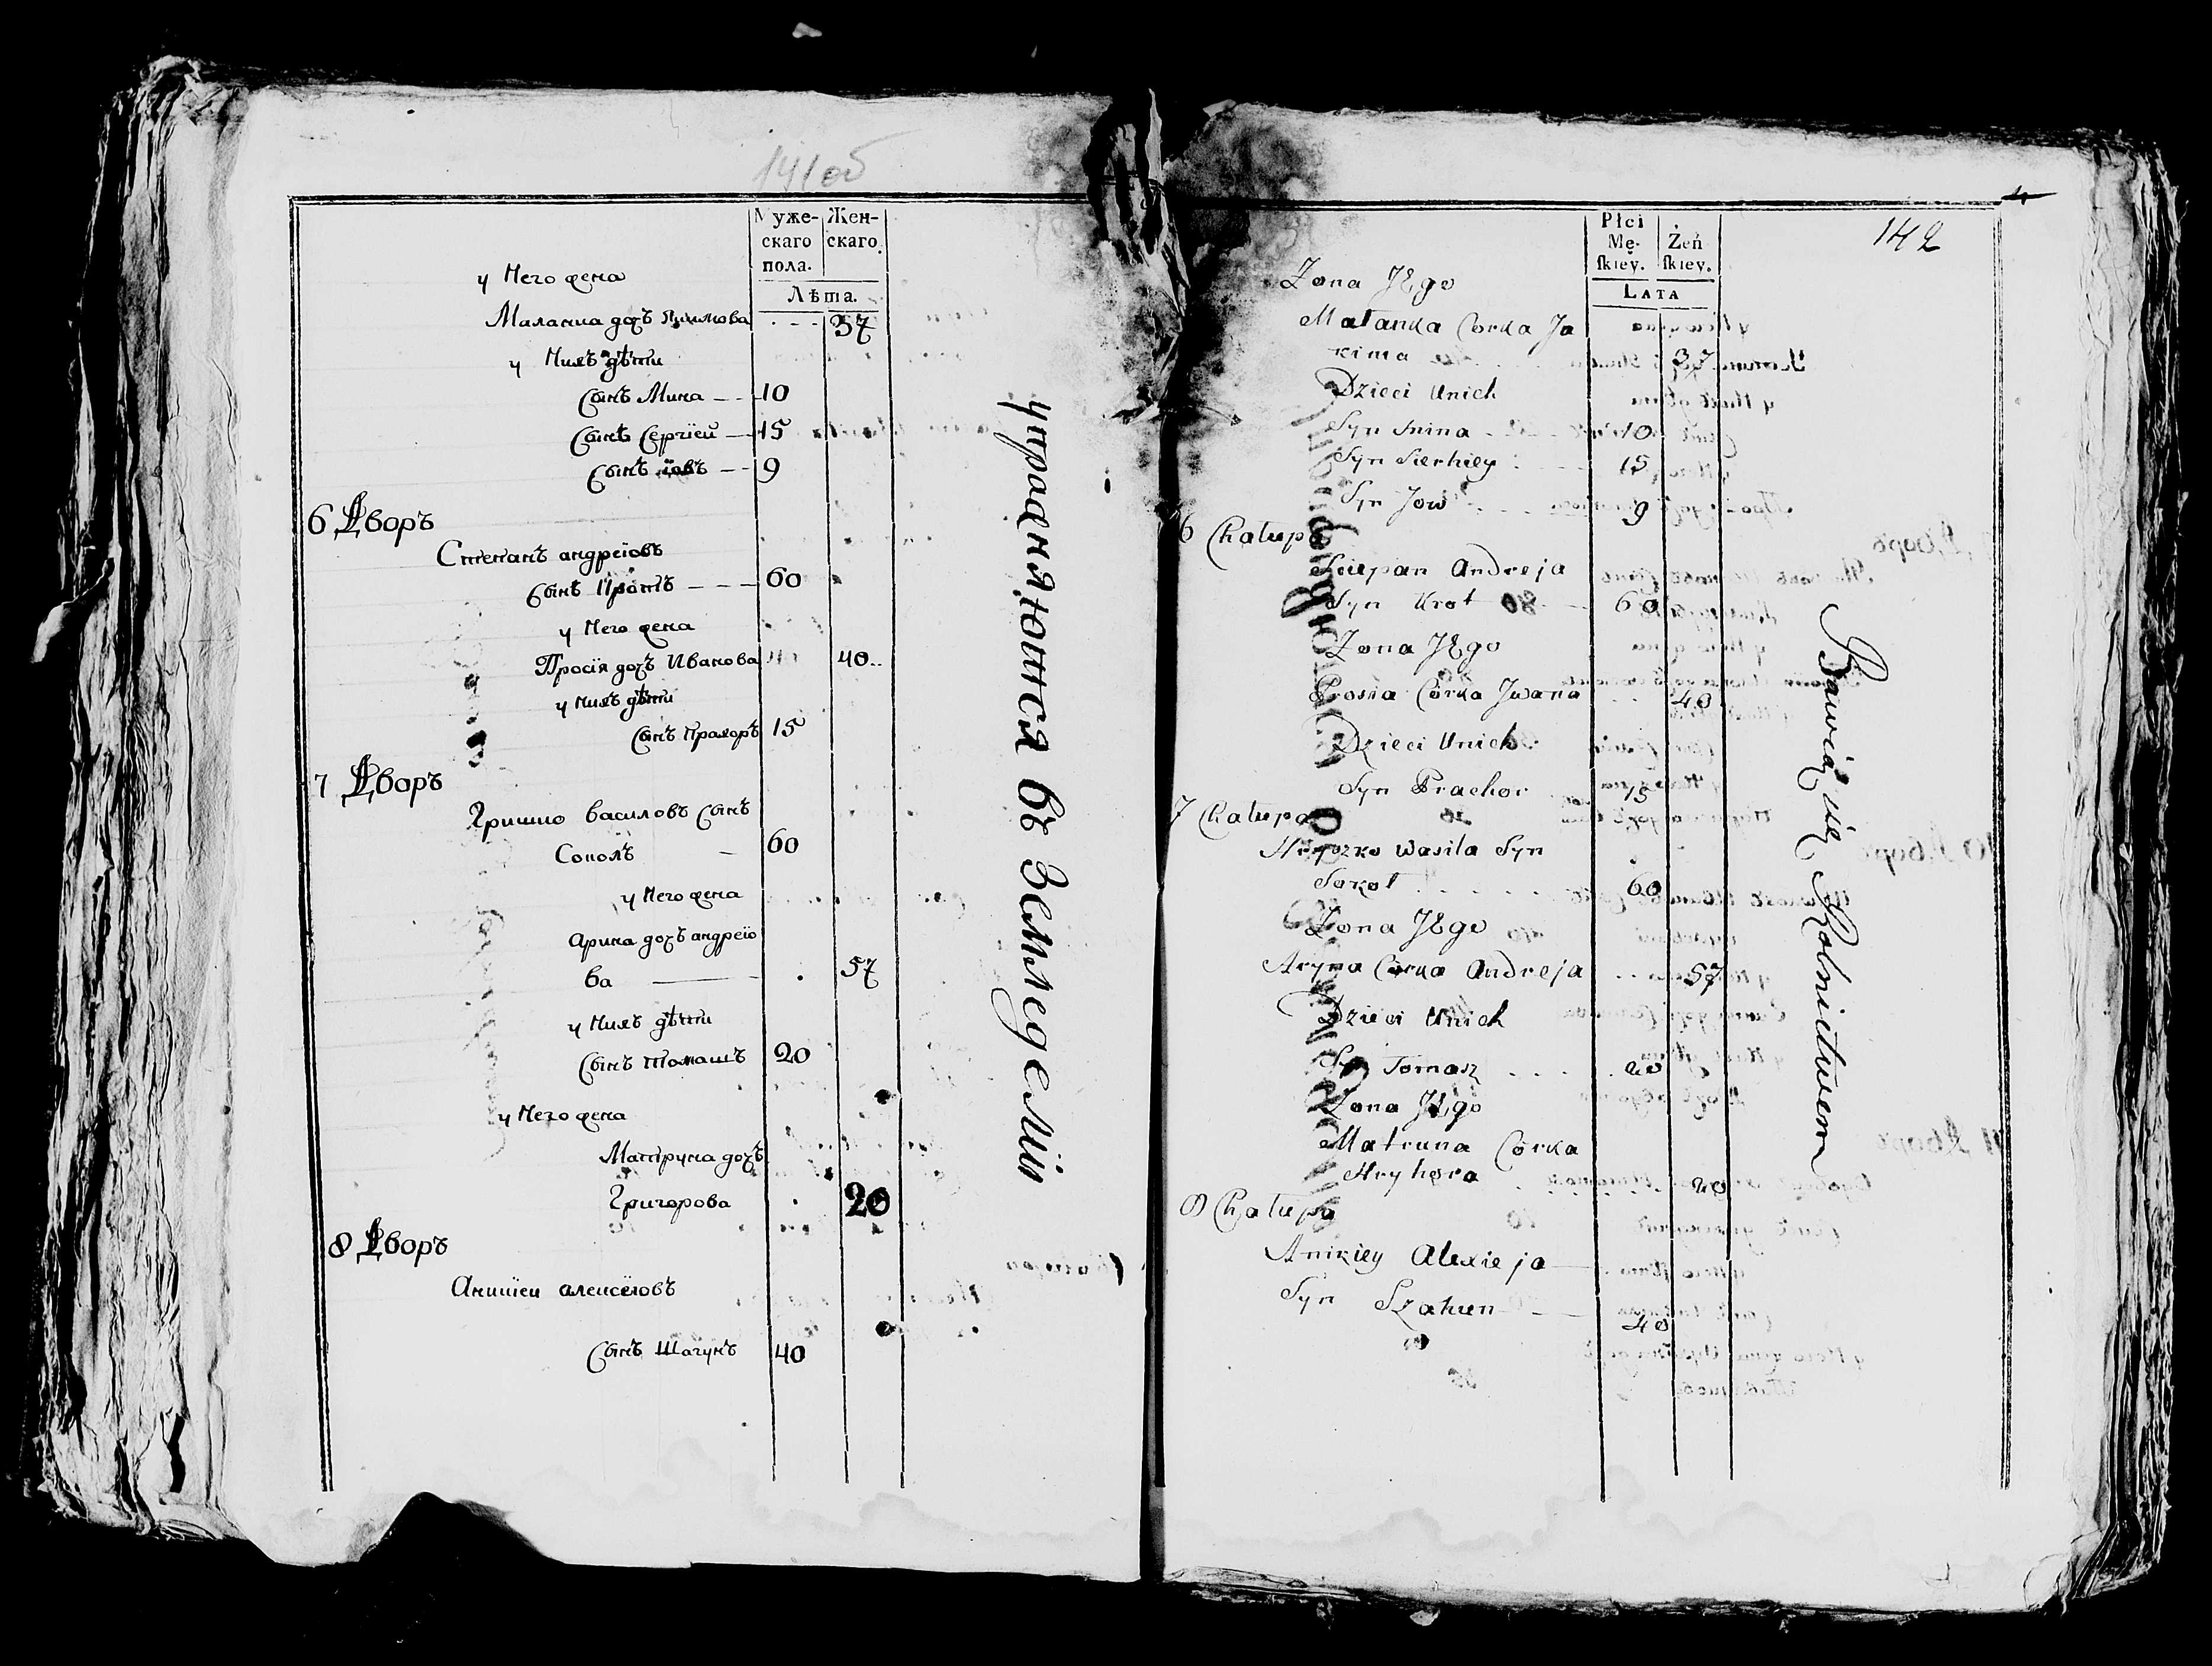 141об
Муже-
скаго
пола.
Жен-
скаго.
Лѣта.
у Него жена
Маланиа дочъ Якимова - - - 37
у Нихъ дѣти
Сынъ Мина - - 10
Сынъ Сергїей - 15
Сынъ їовъ - - 9
6 Дворъ
Степанъ андреїовъ
Сынъ Кротъ - - - 60
у Него жена
Просїя дочъ Иванова 40..
у Нихъ дѣти
Сынъ Прахоръ 15
7 Дворъ
Гришко василовъ Сынъ
Соколъ - 60
у Него жена
Арина дочъ андреїо
ва - . 57
у Нихъ дѣти
Сынъ томашъ 20
у Него жена
Матруна дочъ
Григорова . 20
8 Дворъ
Аникїеи алексеїовъ
Сынъ Шагунъ 40
упражняютися въ Земледелїи
142
Płci
Mę-
ſkiey.
Żeń
ſkiey.
LATA
Zona JEgo
Małanka Corka Ja
kima 37
Dzieci Unich
Syn Mina 10
Syn Sierhiey 15
Syn Jow 9
6 Chałupa
Sciepan Andreja
Syn Krot 60
Zona JEgo
Prosia Córka Jwana 40
Dzieci Unich
Syn Prachor 15
7 Chałupa
Hryszko Wasila Syn
Sokoł 60
Zona JEgo
Aryna Córka Andreja 57
Dzieci Unich
Syn Tomasz 20
Zona JEgo
Matruna Córka
Hryhora 20
8 Chałupa
Anikiey Alexieja
Syn Szahun 40
Bawią się Rolnictwem